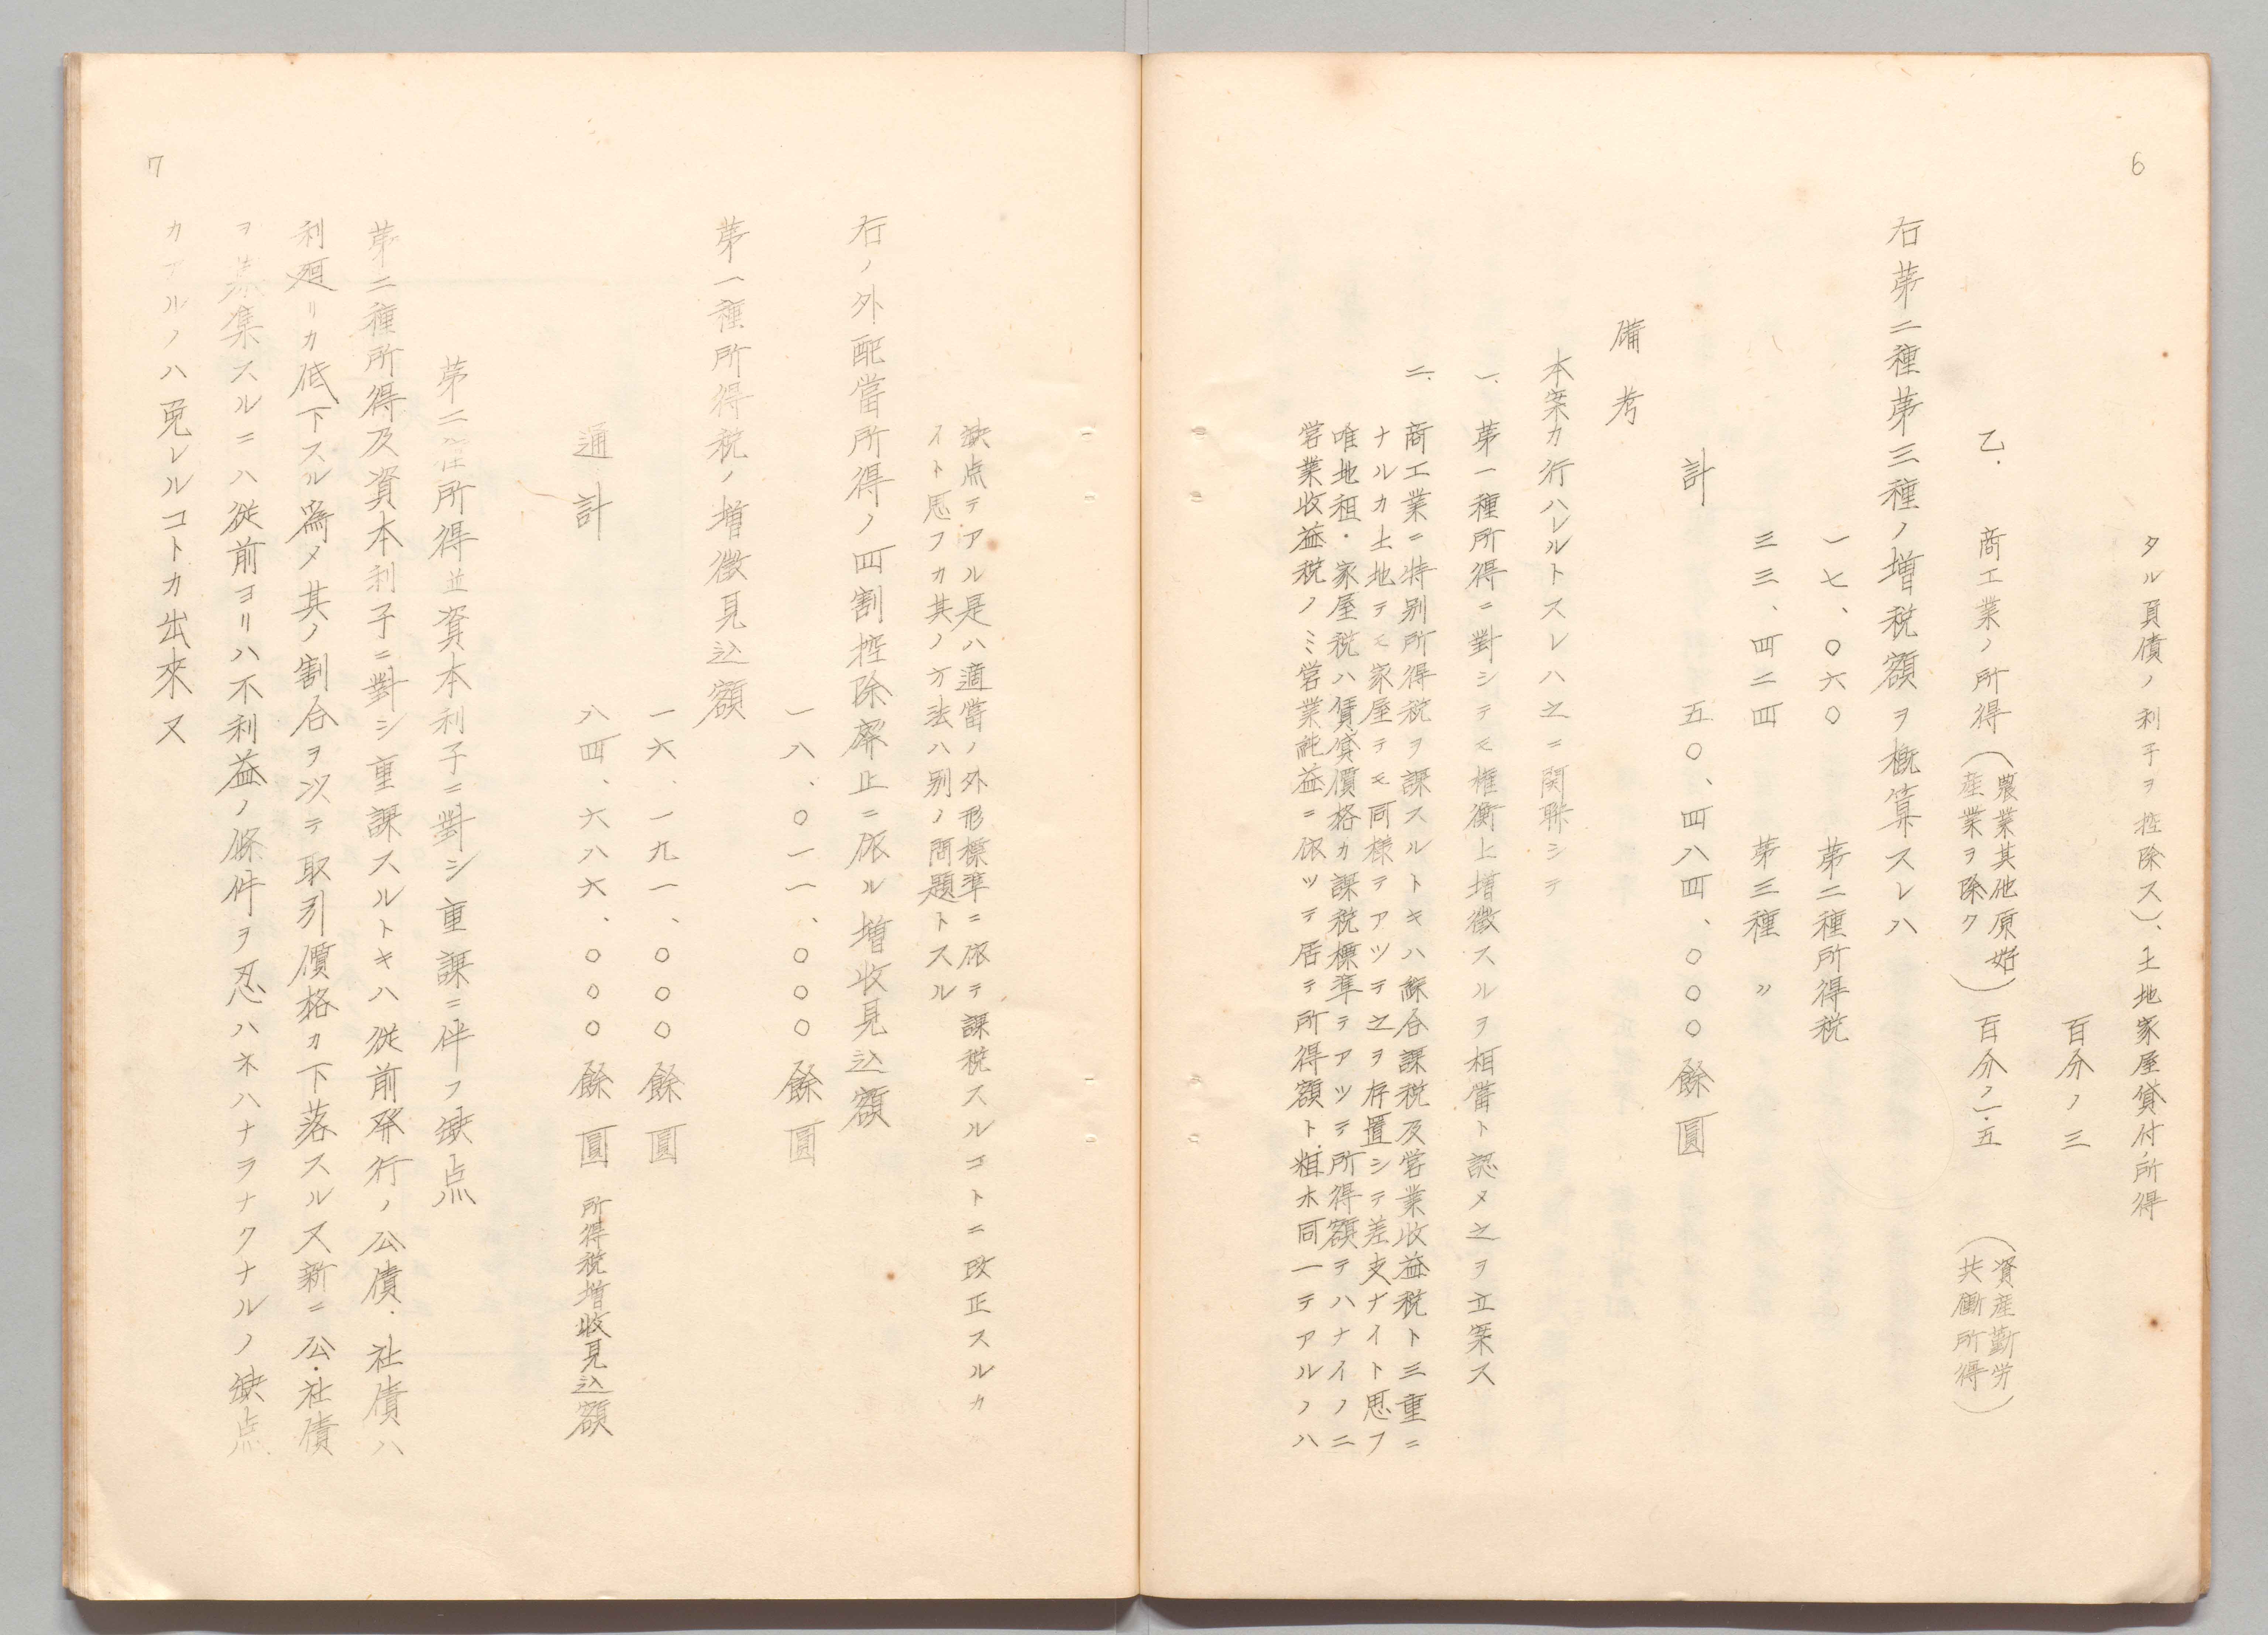 6
タル負債ノ利子ヲ控除ス)、土地家屋貸付所得
百分ノ三
乙. 商工業ノ所得(農業其他原始産業ヲ除ク) 百分ノ一.五 (資産勤労共働所得)
右第二種第三種ノ増税額ヲ概算スレハ
一七、〇六〇 第二種所得税
三三、四二四 第三種〃
計 五〇、四八四、〇〇〇餘圓
備考
本案カ行ハレルトスレハ之ニ関聯シテ
一、第一種所得ニ對シテモ権衡上増徴スルヲ相當ト認メ之ヲ立案ス
二、商工業ニ特別所得税ヲ課スルトキハ綜合課税及営業收益税ト三重ニ
ナルカ土地テモ家屋テモ同様テアツテ之ヲ存置シテ差支ナイト思フ
唯地租・家屋税ハ賃貸價格カ課税標準テアツテ所得額テハナイノニ
営業收益税ノミ営業純益ニ依ツテ居テ所得額ト粗木同一テアルノハ
缺点テアル是ハ適當ノ外形標準ニ依テ課税スルコトニ改正スルカ
イト思フカ其ノ方法ハ別ノ問題トスル
右ノ外配當所得ノ四割控除廃止ニ依ル増收見込額
一八、〇一一、〇〇〇餘圓
第一種所得税ノ増徴見込額
一六、一九一、〇〇〇餘圓
通計 八四、六八六、〇〇〇餘圓 所得税増收見込額
第二種所得並資本利子ニ對シ重課ニ伴フ缺点
第二種所得及資本利子ニ對シ重課スルトキハ従前発行ノ公債・社債ハ
利廻リカ低下スル爲メ其ノ割合ヲ以テ取引價格カ下落スル又新ニ公・社債
ヲ募集スルニハ従前ヨリハ不利益ノ條件ヲ忍ハネハナラナクナルノ缺点
カアルノハ免レルコトカ出來ヌ
7